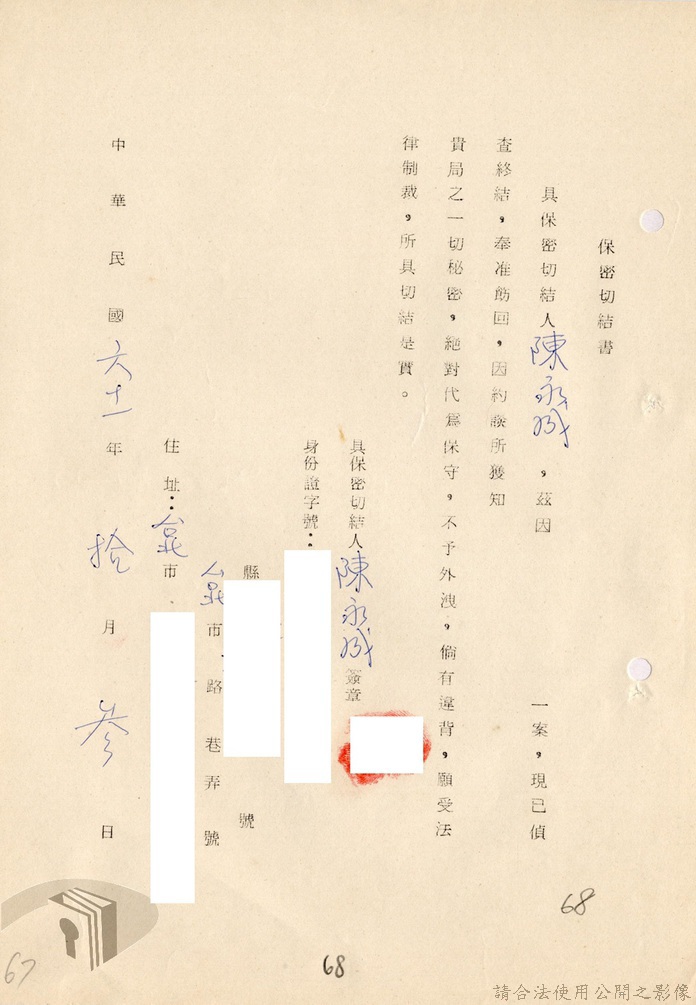 保密切結書
具保密切結人陳永成，茲因　　　　一案，現已偵
查終結，奉准飭回，因約談所獲知
貴局之一切秘密，絕對代為保守，不予外洩，倘有違背，願受法
律制裁，所具切結是實。
具保密切結人陳永成簽章
身份證字號：
縣　　　　號
市　路　巷　弄　號
住址：市
中華民國六十一年拾月叁日
68
68
67
請合法使用公開之影像